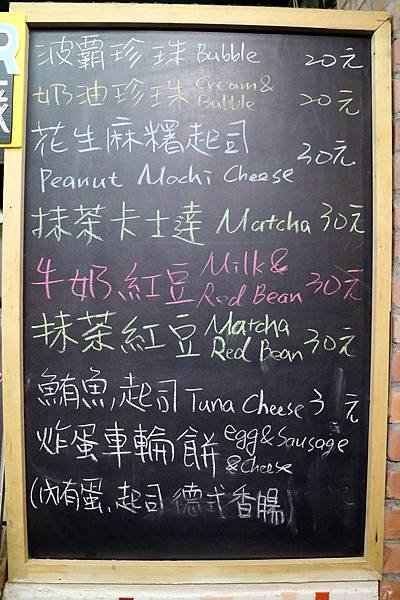 波霸珍珠 Bubble 20元
奶油珍珠 Cream & Bubble 20元
花生麻糬起司 30元
Peanut Mochi Cheese
抹茶卡士達 Matcha 30元
牛奶,紅豆 Milk & Red Bean 30元
抹茶紅豆 Matcha Red Bean 30元
鮪魚,起司 Tuna Cheese 3 元
炸蛋車輪餅 egg & Sausage & Cheese
(內有蛋,起司 德式香腸)